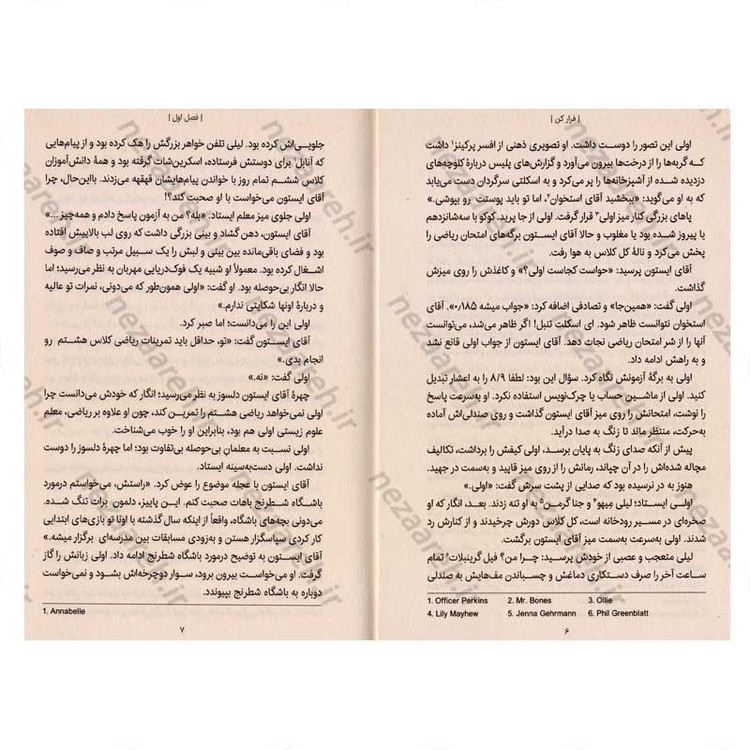 | فرار کن |
اولی این تصور را دوست داشت. او تصویری ذهنی از افسر پرکینز۱ داشت
که گربه‌ها را از درخت‌ها بیرون می‌آورد و گزارش‌های پلیس دربارهٔ کلوچه‌های
دزدیده شده از آشپزخانه‌ها را پر می‌کرد و به اسکلتی سرگردان دست می‌یابد
که به او می‌گوید: «ببخشید آقای استخوان۲، اما تو باید پوستت رو بپوشی.»
پاهای بزرگی کنار میز اولی۳ قرار گرفت. اولی از جا پرید. کوکو با سه‌شانزدهم
یا پیروز شده بود یا مغلوب و حالا آقای ایستون برگه‌های امتحان ریاضی را
پخش می‌کرد و نالهٔ کل کلاس به هوا رفت.
آقای ایستون پرسید: «حواست کجاست اولی؟» و کاغذش را روی میزش
گذاشت.
اولی گفت: «همین‌جا» و تصادفی اضافه کرد: «جواب میشه ۰/۱۸۵». آقای
استخوان نتوانست ظاهر شود. ای اسکلت تنبل! اگر ظاهر می‌شد، می‌توانست
آنها را از شر امتحان ریاضی نجات دهد. آقای ایستون از جواب اولی قانع نشد
و به راهش ادامه داد.
اولی به برگهٔ آزمونش نگاه کرد. سؤال این بود: لطفا ۸/۹ را به اعشار تبدیل
کنید. اولی از ماشین حساب یا چرک‌نویس استفاده نکرد. او به‌سرعت پاسخ
را نوشت، امتحانش را روی میز آقای ایستون گذاشت و روی صندلی‌اش آماده
به‌حرکت، منتظر ماند تا زنگ به صدا درآید.
پیش از آنکه صدای زنگ به پایان برسد، اولی کیفش را برداشت، تکالیف
مچاله شده‌اش را در آن چپاند، رمانش را از روی میز قاپید و به‌سمت در جهید.
هنوز به در نرسیده بود که صدایی از پشت سرش گفت: «اولی.»
اولی ایستاد؛ لیلی مِیهو۴ و جنا گرمن۵ به او تنه زدند. بعد، انگار که او
صخره‌ای در مسیر رودخانه است، کل کلاس دورش چرخیدند و از کنارش رد
شدند. اولی برگشت به‌سمت میز آقای ایستون برگشت.
لیلی متعجب و عصبی از خودش پرسید: چرا من؟ فیل گرینبلات۶ تمام
ساعت آخر را صرف دستکاری دماغش و چسباندن مف‌هایش به صندلی
1. Officer Perkins 2. Mr. Bones 3. Ollie
4. Lily Mayhew 5. Jenna Gehrmann 6. Phil Greenblatt
۶
| فصل اول |
جلویی‌اش کرده بود. لیلی تلفن خواهر بزرگش را هک کرده بود و از پیام‌هایی
که آنابل۱ برای دوستش فرستاده، اسکرین‌شات گرفته بود و همهٔ دانش‌آموزان
کلاس ششم تمام روز با خواندن پیام‌هایشان قهقهه می‌زدند. بااین‌حال، چرا
آقای ایستون می‌خواست با او صحبت کند؟!
اولی جلوی میز معلم ایستاد. «بله؟ من به آزمون پاسخ دادم و همه‌چیز ...»
آقای ایستون، دهن گشاد و بینی بزرگی داشت که روی لب بالاییش افتاده
بود و فضای باقی‌مانده بین بینی و لبش را یک سبیل مرتب و صاف و صوف
اشغال کرده بود. معمولاً او شبیه یک فوک‌دریایی مهربان به نظر می‌رسید؛ اما
حالا انگار بی‌حوصله بود. او گفت: «اولی همون‌طور که می‌دونی، نمرات تو عالیه
و دربارهٔ اونها شکایتی ندارم.»
اولی این را می‌دانست؛ اما صبر کرد.
آقای ایستون گفت: «تو، حداقل باید تمرینات ریاضی کلاس هشتم رو
انجام بدی.»
اولی گفت: «نه.»
چهرهٔ آقای ایستون دلسوز به نظر می‌رسید؛ انگار که خودش می‌دانست چرا
اولی نمی‌خواهد ریاضی هشتم را تمرین کند، چون او علاوه بر ریاضی، معلم
علوم زیستی اولی هم بود، بنابراین او را خوب می‌شناخت.
اولی نسبت به معلمانِ بی‌حوصله بی‌تفاوت بود؛ اما چهرهٔ دلسوز را دوست
نداشت. اولی دست‌به‌سینه ایستاد.
آقای ایستون با عجله موضوع را عوض کرد. «راستش، می‌خواستم درمورد
باشگاه شطرنج باهات صحبت کنم. این پاییز، دلمون برات تنگ شده.
می‌دونی بچه‌های باشگاه، واقعاً از اینکه سال گذشته با اونا تو بازی‌های ابتدایی
کار کردی سپاسگزار هستن و به‌زودی مسابقات بین مدرسه‌ای برگزار میشه.»
آقای ایستون به توضیح درمورد باشگاه شطرنج ادامه داد. اولی زبانش را گاز
گرفت. او می‌خواست بیرون برود، سوار دوچرخه‌اش بشود و نمی‌خواست
دوباره به باشگاه شطرنج بپیوندد.
1. Annabelle
۷
nezaareh.ir